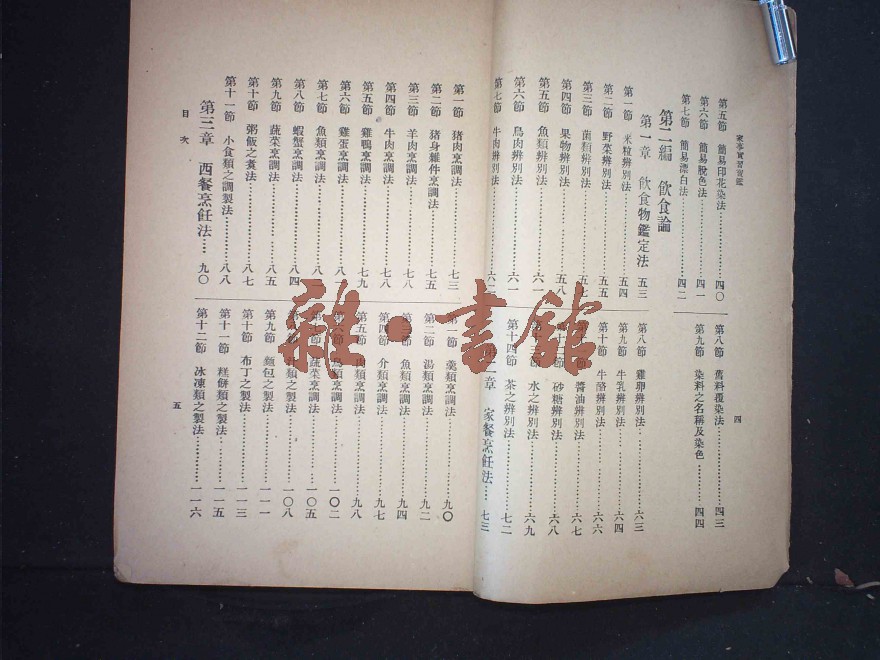 家事實習寶鑑
第五節 簡易印花染法 四〇
第六節 簡易脫色法 四一
第七節 簡易漂白法 四二
第二編 飲食論
第一章 飲食物鑑定法 五三
第一節 米粒辨別法 五四
第二節 野菜辨別法 五五
第三節 菌類辨別法 五七
第四節 果物辨別法 五八
第五節 魚類辨別法 六一
第六節 鳥肉辨別法 六一
第七節 牛肉辨別法 六二
四
第八節 舊料覆染法 四三
第九節 染料之名稱及染色 四四
第八節 雞卵辨別法 六三
第九節 牛乳辨別法 六四
第十節 牛酪辨別法 六六
醬油辨別法 六七
砂糖辨別法 六八
水之辨別法 六九
第十四節 茶之辨別法 七二
第二章 家餐烹飪法 七三
第一節 豬肉烹調法 七三
第二節 豬身雜件烹調法 七五
第三節 羊肉烹調法 七八
第四節 牛肉烹調法 七八
第五節 雞鴨烹調法 七九
第六節 雞蛋烹調法
第七節 魚類烹調法
第八節 蝦蟹烹調法 八四
第九節 蔬菜烹調法 八五
第十節 粥飯之煑法 八七
第十一節 小食類之調製法 八八
第三章 西餐烹飪法 九〇
目次
第一節 羹類烹調法 九〇
第二節 湯類烹調法 九二
第三節 魚類烹調法 九四
第四節 介類烹調法 九七
第五節 肉類烹調法 九八
第六節 鳥類烹調法 一〇二
第七節 蔬菜烹調法 一〇五
類之製法 一〇八
第九節 麵包之製法 一一一
第十節 布丁之製法 一一三
第十一節 糕餅類之製法 一一五
第十二節 冰凍類之製法 一一六
五
雜·書館